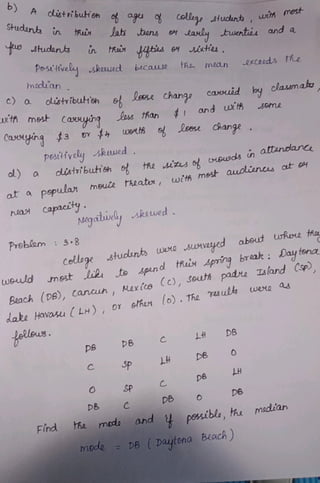 b) A distribution of age of college students, with most
students in their late teens or early twenties and a
few students in their fifties or sixties.
Positively skewed because the mean exceeds the
median.
c) a distribution of loose change carried by classmates,
with most carrying less than $1 and with some
carrying $3 or $4 worth of loose change.
positively skewed.
d) a distribution of the sizes of crowds in attendance
at a popular movie theater, with most audiences at or
near capacity.
Negatively skewed.
Problem : 3.8
College students were surveyed about where they
would most like to spend their spring break: Daytona
Beach (DB), Cancun, Mexico (C), South Padre Island (SP),
Lake Havasu (LH), or other (O). The results were as
follows.
DB DB C LH DB
C SP LH DB O
O SP C DB LH
DB C DB O DB
Find the mode and if possible, the median
mode = DB (Daytona Beach)